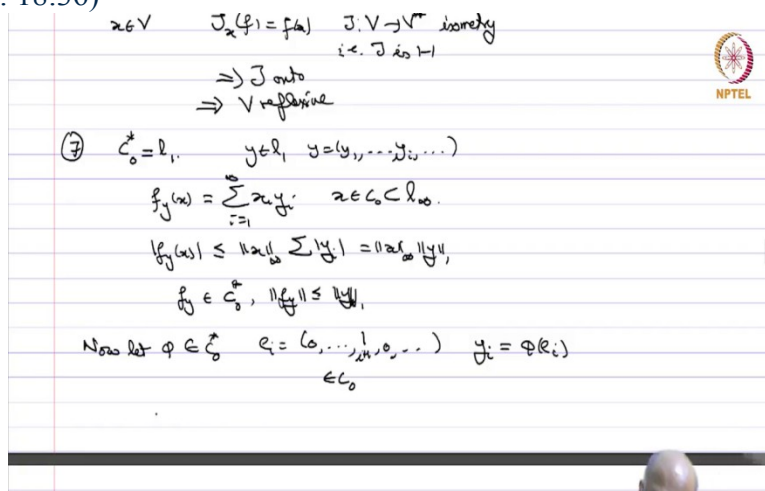 : 18:50)
x∈V J_x(f) = f(x) J: V→V** isometry
i.e. J is 1-1
⇒ J onto
⇒ V reflexive
NPTEL
⑦ c₀* = l₁. y∈l₁ y=(y₁,...y_i,...)
f_y(x) = ∑_{i=1}^∞ x_i y_i x∈c₀⊂l_∞.
|f_y(x)| ≤ ‖x‖_∞ ∑|y_i| = ‖x‖_∞ ‖y‖₁
f_y ∈ c₀*, ‖f_y‖ ≤ ‖y‖₁
Now let φ ∈ c₀* e_i = (0,...,1,0,...) y_i = φ(e_i)
i-th
∈c₀